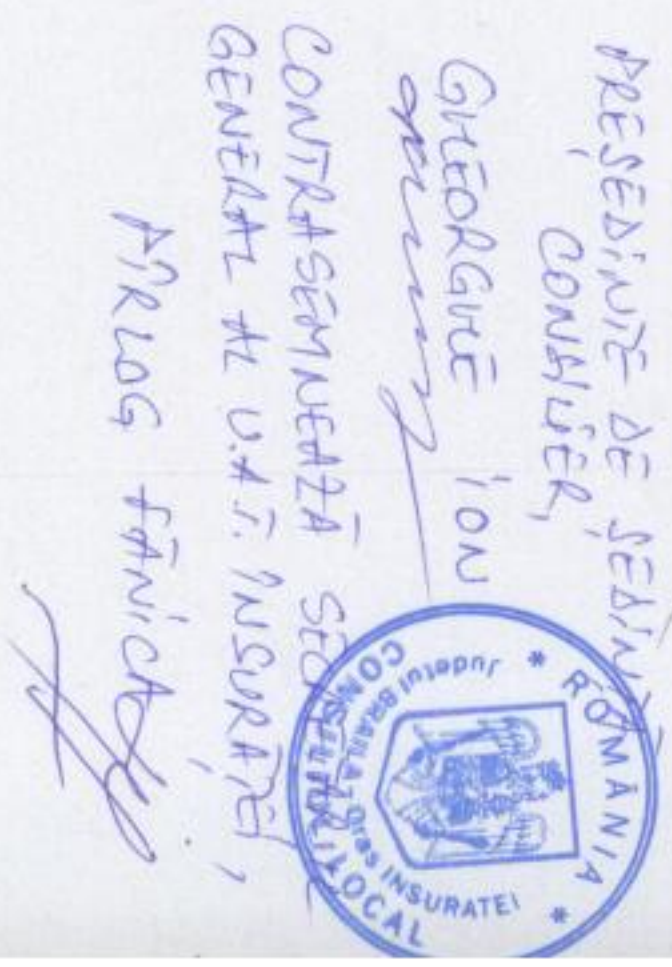 PREȘEDINTE DE ȘEDINȚĂ
CONSILIER,
GHEORGHE ION
CONTRASEMNEAZĂ SECRETAR
GENERAL AL U.A.T. ÎNSURĂȚEI,
PÎRLOG FĂNICA
* ROMÂNIA *
Judetul BRAILA - Oras INSURATEI
CONSILIUL LOCAL